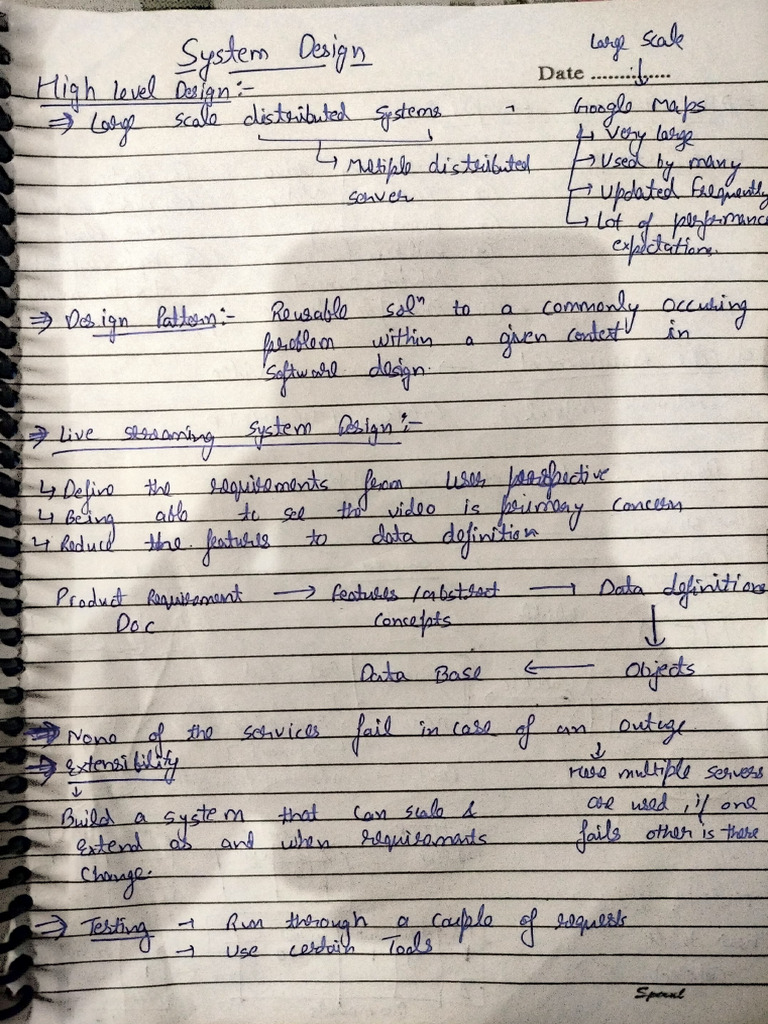 System Design
Large Scale
Date ..............
High Level Design :-
⇒ Large scale distributed systems
Google Maps
↳ Very large
↳ Multiple distributed
server
→ Used by many
→ Updated Frequently
↳ Lot of performance
expectations.
⇒ Design Pattern :- Reusable solⁿ to a commonly occuring
problem within a given context in
Software design.
⇒ Live streaming system Design :-
↳ Define the requirements from user perspective
↳ Being able to see the video is primary concern
↳ Reduce the features to data definition
Product Requirement → Features / abstract → Data definitions
Doc concepts ↓
Data Base ← Objects
⇒ None of the services fail in case of an outage
⇒ Extensibility
↓
Here multiple servers
Build a system that can scale & are used, if one
Extend as and when requirements fails other is there
Change.
⇒ Testing → Run through a couple of requests
→ Use certain Tools